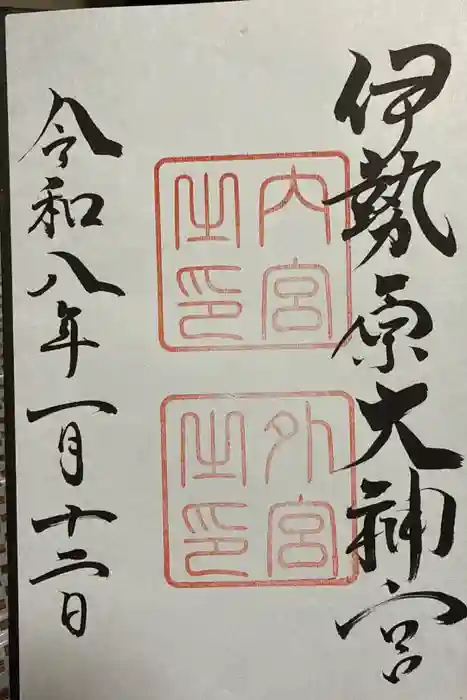 伊勢原大神宮
内宮之印
外宮之印
令和八年一月十二日